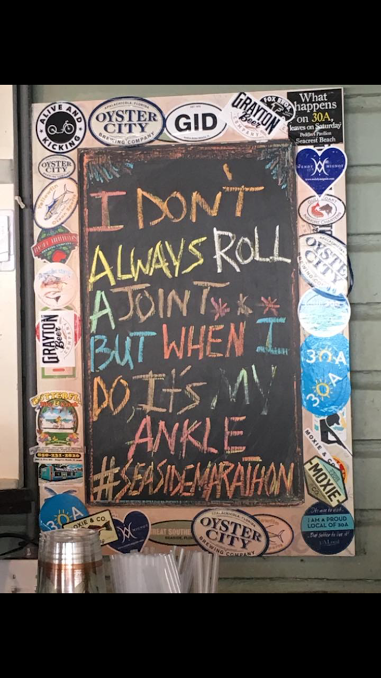 ALIVE AND KICKING
APALACHICOLA, FLORIDA
OYSTER CITY
BREWING COMPANY
GID
GRAYTON
Beer
What
happens
on 30A,
leaves on Saturday
Seacrest Beach
OYSTER
CITY
OYSTER
CITY
GRAYTON
Beer
30A
30A
MOXIE &
MOXIE
I AM A PROUD
LOCAL OF 30A
I DON'T
ALWAYS ROLL
A JOINT***
BUT WHEN I
DO, It's MY
ANKLE
#SEASIDEMARATHON
30A
OXIE & CO.
GREAT SOUTHERN
OYSTER
CITY
BREWING COMPANY